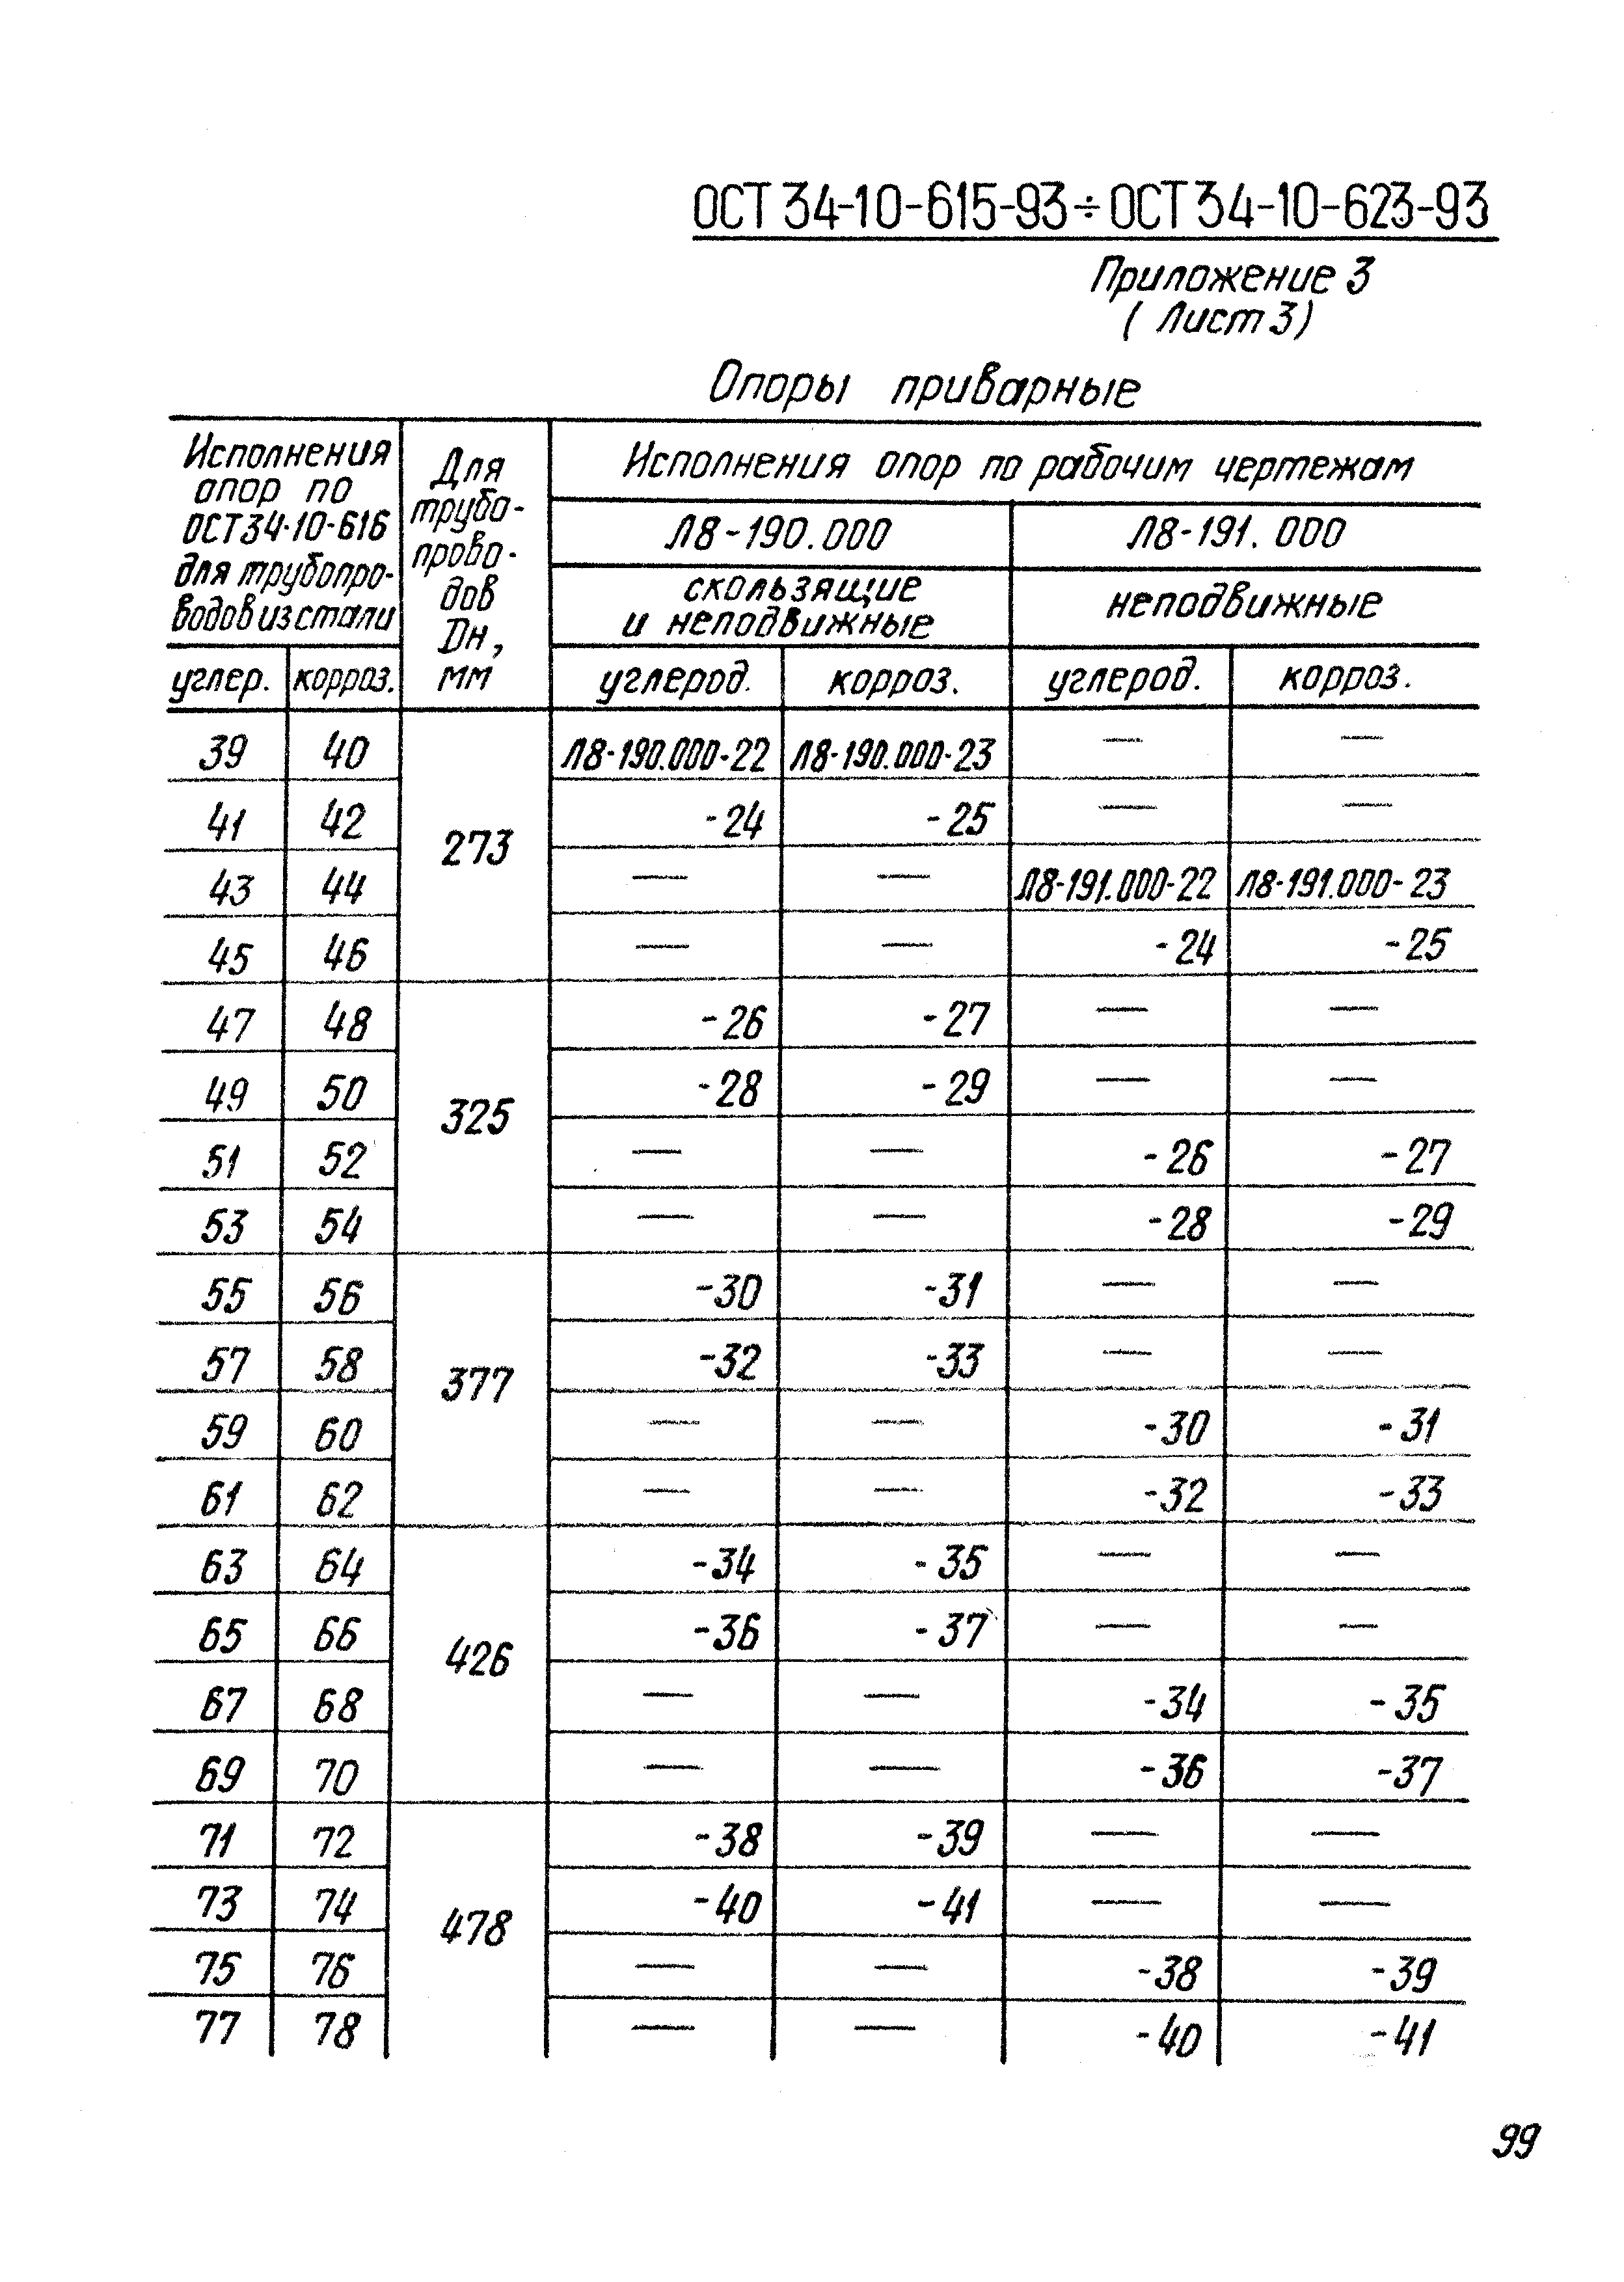 ОСТ 34-10-615-93÷ОСТ 34-10-623-93
Приложение 3
( Лист 3)
Опоры приварные
Исполнения
опор по
ОСТ34-10-616
для трубопро-
водов из стали
Для
трубо-
прово-
дов
Dн,
мм
Исполнения опор по рабочим чертежам
Л8-190.000 Л8-191.000
скользящие
и неподвижные
неподвижные
углер. корроз. углерод. корроз. углерод. корроз.
39 40 273 Л8-190.000-22 Л8-190.000-23 — —
41 42 -24 -25 — —
43 44 — — Л8-191.000-22 Л8-191.000-23
45 46 — — -24 -25
47 48 325 -26 -27 — —
49 50 -28 -29 — —
51 52 — — -26 -27
53 54 — — -28 -29
55 56 377 -30 -31 — —
57 58 -32 -33 — —
59 60 — — -30 -31
61 62 — — -32 -33
63 64 426 -34 -35 — —
65 66 -36 -37 — —
67 68 — — -34 -35
69 70 — — -36 -37
71 72 478 -38 -39 — —
73 74 -40 -41 — —
75 76 — — -38 -39
77 78 — — -40 -41
99